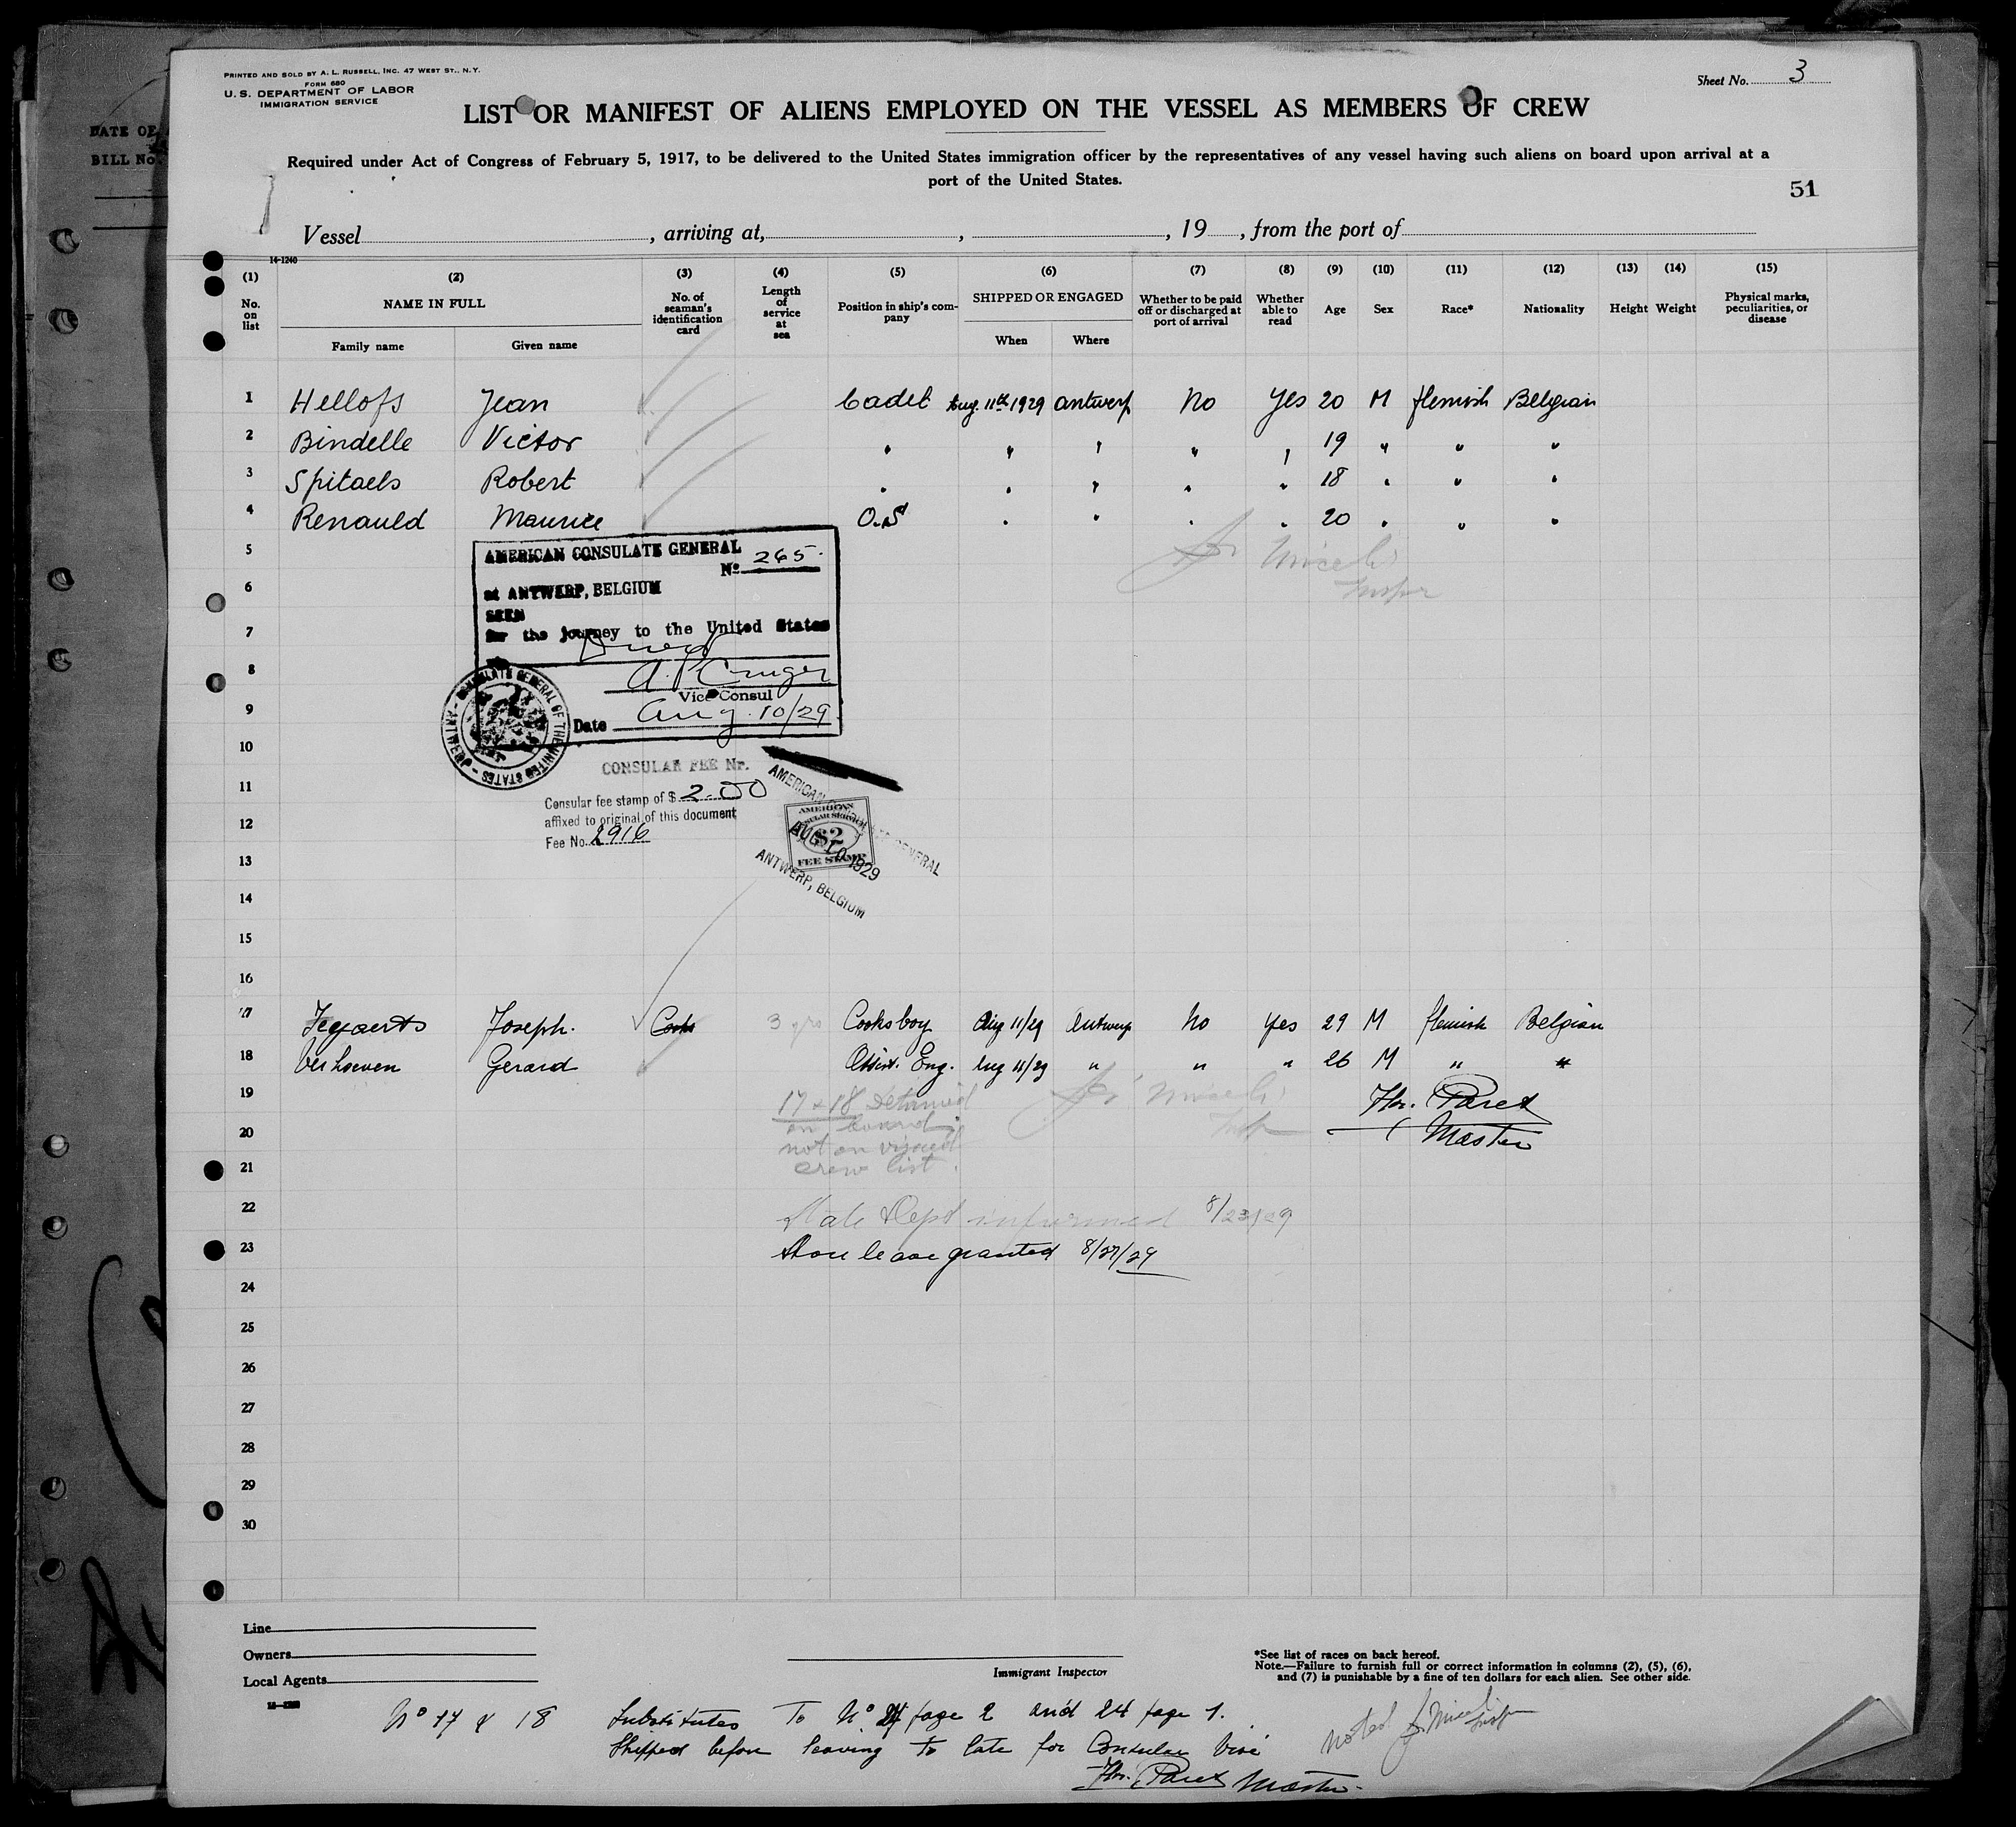 PRINTED AND SOLD BY A. L. RUSSELL, INC. 47 WEST ST., N.Y.
FORM 680
U. S. DEPARTMENT OF LABOR
IMMIGRATION SERVICE
Sheet No. 3
LIST OR MANIFEST OF ALIENS EMPLOYED ON THE VESSEL AS MEMBERS OF CREW
Required under Act of Congress of February 5, 1917, to be delivered to the United States immigration officer by the representatives of any vessel having such aliens on board upon arrival at a
port of the United States.
51
Vessel, arriving at, , , 19 , from the port of
14-1240
(1) (2) (3) (4) (5) (6) (7) (8) (9) (10) (11) (12) (13) (14) (15)
No. on list
NAME IN FULL
Family name Given name
No. of seaman's identification card
Length of service at sea
Position in ship's company
SHIPPED OR ENGAGED
When Where
Whether to be paid off or discharged at port of arrival
Whether able to read
Age Sex Race* Nationality Height Weight
Physical marks, peculiarities, or disease
1 Hellofs Jean Cadet Aug. 11th 1929 Antwerp No Yes 20 M flemish Belgian
2 Bindelle Victor " " " " " 19 " " "
3 Spitaels Robert " " " " " 18 " " "
4 Renauld Maurice O.S " " " " 20 " " "
5
6
7
8
9
10
11
12
13
14
15
16
AMERICAN CONSULATE GENERAL
No. 265.
at ANTWERP, BELGIUM
SEEN
for the journey to the United States
Vice Consul
Date Aug. 10/29
CONSULATE GENERAL OF THE UNITED STATES - ANTWERP -
CONSULAR FEE Nr.
Consular fee stamp of $ 2.00
affixed to original of this document
Fee No. 2916
AMERICAN CONSULATE GENERAL
AMERICAN
CONSULAR SERVICE
$2
FEE STAMP
AUG 10 1929
ANTWERP, BELGIUM
17 Joseph. Cook 3 yrs Cooksboy Aug 11/29 Antwerp No Yes 29 M flemish Belgian
18 Verhoeven Gerard Assist. Eng. Aug 11/29 " " " 26 M " "
19
20
21
22
23
24
25
26
27
28
29
30
17 & 18 detained
on board
not on visaed
crew list.
Paret
Master
State Dept informed 8/23/29
Shore leave granted 8/27/29
Line
Owners
Local Agents
Immigrant Inspector
*See list of races on back hereof.
Note.—Failure to furnish full or correct information in columns (2), (5), (6),
and (7) is punishable by a fine of ten dollars for each alien. See other side.
No 17 & 18 Substitutes To No page 2 and 24 page 1.
Shipped before leaving to late for Consular Visé
Paret Master.
noted
DATE OF
BILL No.